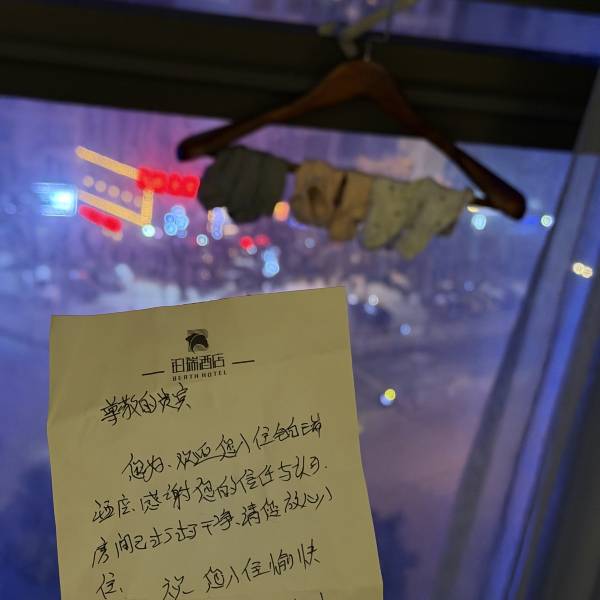 泊瑞酒店
BERTH HOTEL
尊敬的贵宾
您好、欢迎您入住铂瑞
酒店、感谢您的信任与认可.
房间已打扫干净、请您放心入
住、 祝 您入住愉快